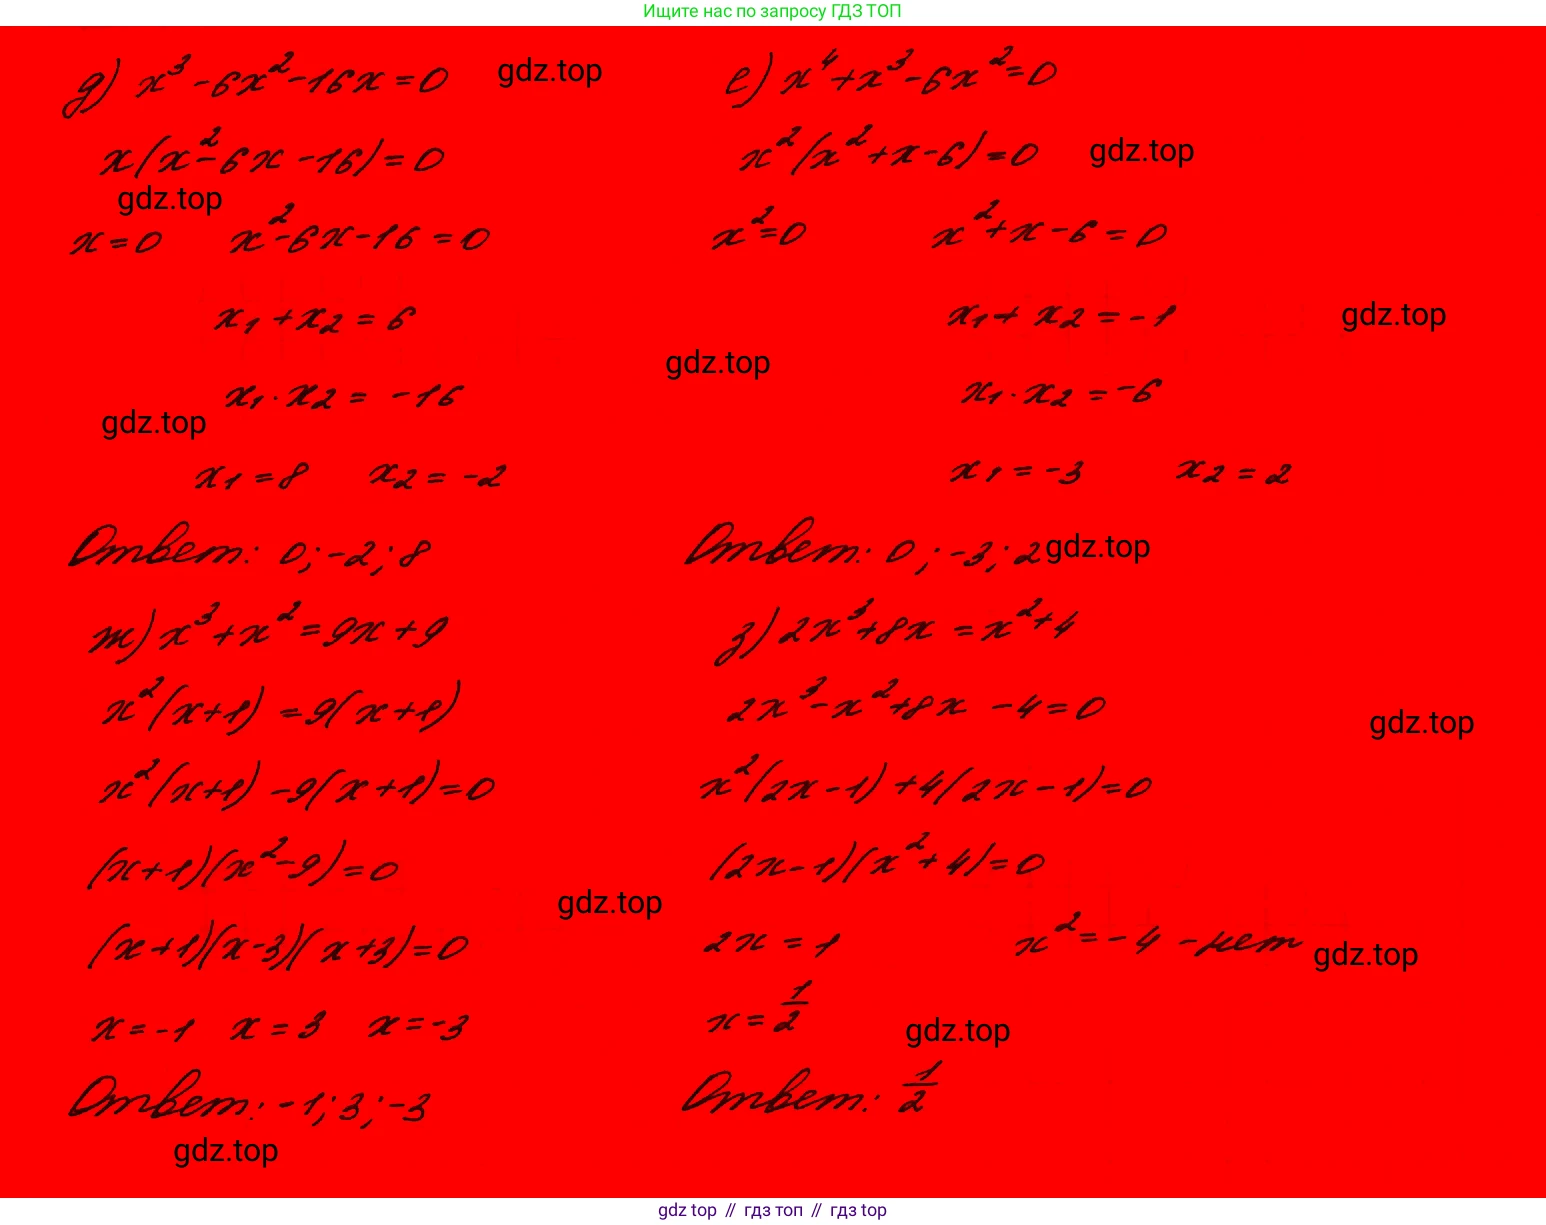 Ищите нас по запросу ГДЗ ТОП
д) x³ - 6x² - 16x = 0
gdz.top
x(x² - 6x - 16) = 0
gdz.top
x = 0    x² - 6x - 16 = 0
x₁ + x₂ = 6
x₁ · x₂ = -16
gdz.top
gdz.top
x₁ = 8    x₂ = -2
Ответ: 0; -2; 8
е) x⁴ + x³ - 6x² = 0
x²(x² + x - 6) = 0
gdz.top
x² = 0    x² + x - 6 = 0
x₁ + x₂ = -1
gdz.top
x₁ · x₂ = -6
x₁ = -3    x₂ = 2
Ответ: 0; -3; 2
gdz.top
ж) x³ + x² = 9x + 9
x²(x+1) = 9(x+1)
x²(x+1) - 9(x+1) = 0
(x+1)(x² - 9) = 0
gdz.top
(x+1)(x-3)(x+3) = 0
x = -1    x = 3    x = -3
Ответ: -1; 3; -3
gdz.top
з) 2x³ + 8x = x² + 4
2x³ - x² + 8x - 4 = 0
gdz.top
x²(2x - 1) + 4(2x - 1) = 0
(2x - 1)(x² + 4) = 0
2x = 1    x² = -4 - нет
gdz.top
x = 1/2
gdz.top
Ответ: 1/2
gdz top // гдз топ // гдз top